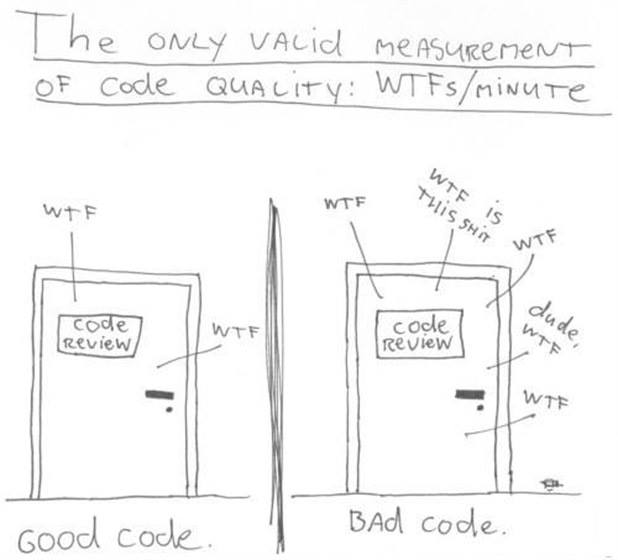 The ONLY VALID MEASUREMENT
OF Code QUALITY: WTFs/MINUTE
WTF
code
REVIEW
WTF
Good code.
WTF
WTF IS
THIS SHIT
WTF
code
REVIEW
dude,
WTF
WTF
BAd code.